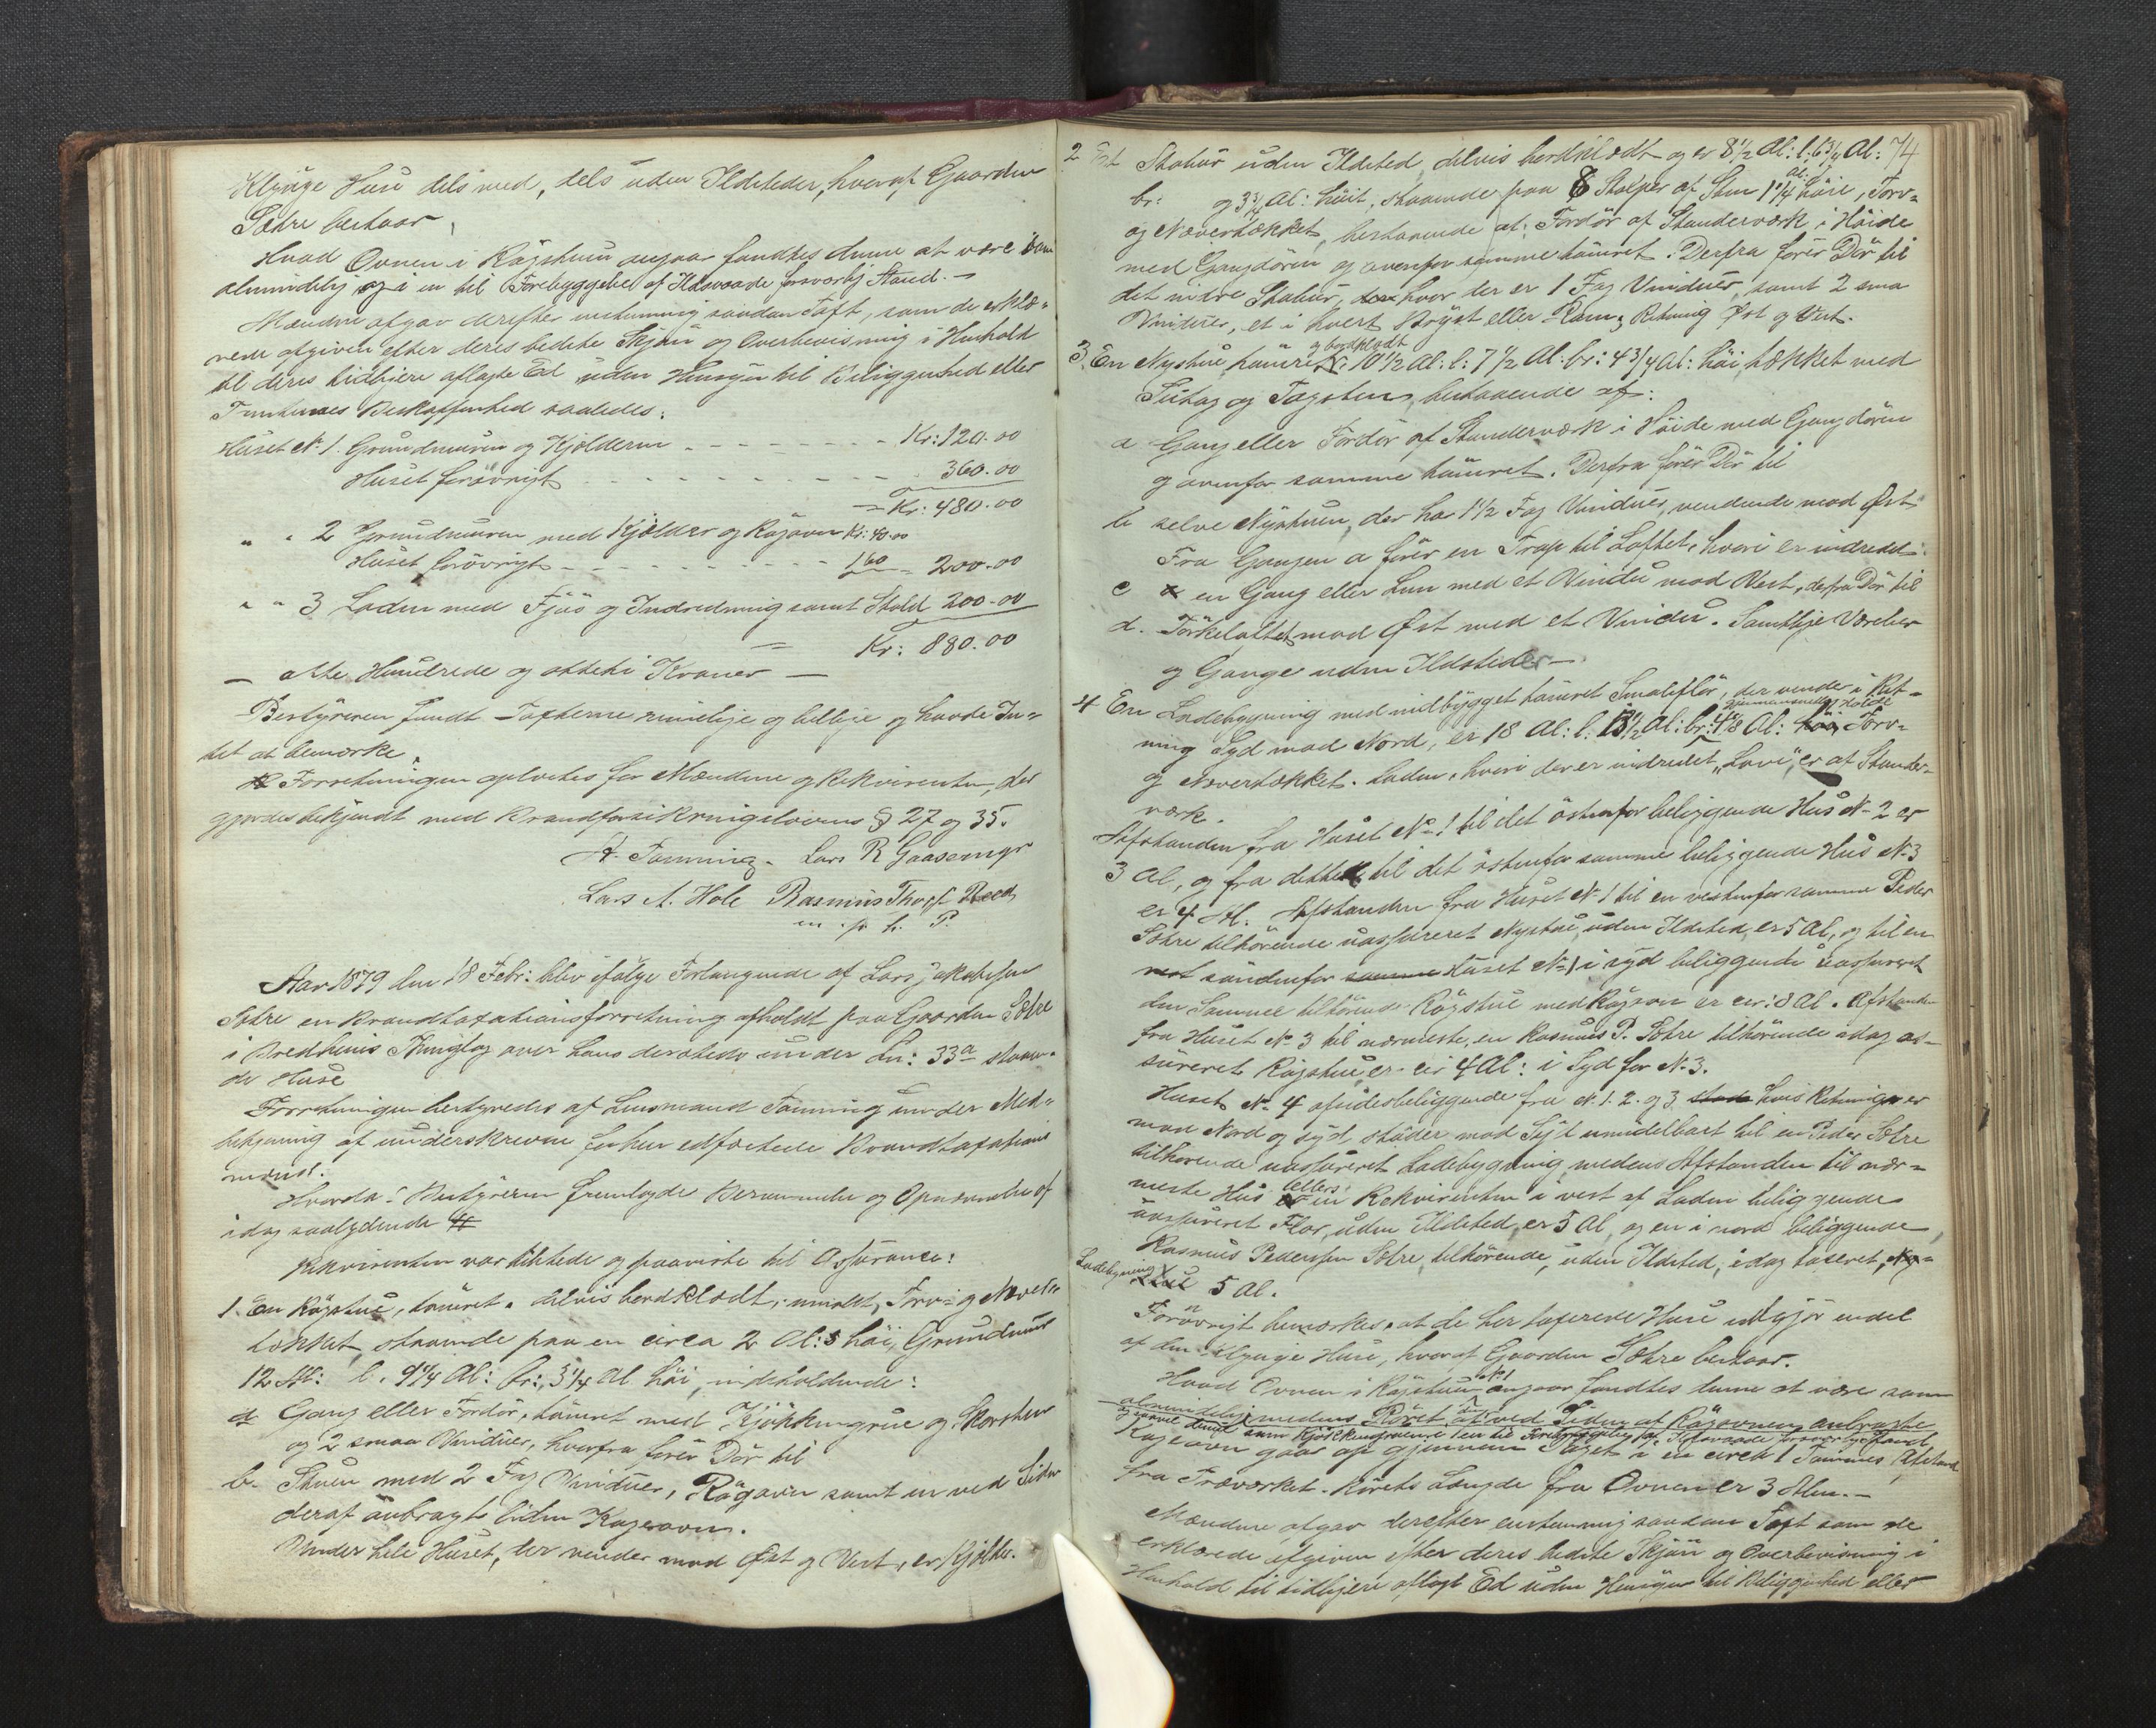 Klynge Huse dels med, dels uden Ildsteder, hvoraf Gaarden
Sætre bestaar.
Hvad Ovnen i Røgstuen angaar fandtes denne at være som
almindelig og i en til Forebyggelse af Ildsvaade forsvarlig Stand. —
Mændene afgav derefter enstemmig saadan Taxt, som de erklæ-
rede afgiven efter deres bedste Skjøn og Overbevisning i Henhold
til deres tidligere aflagte Ed uden Hensyn til Beliggenhed eller
Tomternes Beskaffenhed saaledes:
Huset No 1. Grundmuren og Kjælderen - - - - - - Kr: 120.00
Huset forøvrigt - - - - - - - - - 360.00
= Kr: 480.00
" " 2 Grundmuren med Kjælder og Røgovn Kr: 40.00
Huset forøvrigt - - - - - - - - - 160 = 200.00
" " 3 Laden med Fjøs og Indredning samt Stald 200.00
= Kr: 880.00
— otte Hundrede og otteti Kroner —
Bestyreren fandt Taxterne rimelige og billige og havde In-
tet at bemærke.
Forretningen oplæstes for Mændene og Rekvirenten, der
gjordes bekjendt med Brandforsikringslovens § 27 og 35.
A. Tanning. Lars R Gaasemyr
Lars A. Hole Rasmus Thors. Reed
m. p. P.
Aar 1879 den 18 Febr: blev ifølge Forlangende af Lars Jakobsen
Sætre en Brandtaxationsforretning afholdt paa Gaarden Sætre
i Bredheims Thinglag over hans dersteds under Ln: 33a staaen-
de Huse
Forretningen bestyredes af Lensmand Tanning under Med-
betjening af underskrevne forhen edfæstede Brandtaxations
mænd.
Hvorda: Bestyreren fremlagde Berammelse og Opnævnelse af
idag saalydende #
Rekvirenten var tilstede og paaviste til Assurance:
1. En Røgstue, tømret, delvis bordklædt, umalt, Torv- og Næver-
tækket, staaende paa en circa 2 Al: høi, Grundmur
12 Al: l. 9 1/4 Al: br: 3 1/4 Al høi, indeholdende:
a Gang eller Fordør, tømret med Kjøkkengrue og Skorsten
og 2 smaa Vinduer, hvorfra fører Dør til
b. Stuen med 2 Fag Vinduer, Røgovn samt en ved Siden
deraf anbragt liden Kogeovn.
Under hele Huset, der vender mod Øst og Vest, er Kjælder.
74
2 Et Stabur uden Ildsted, delvis bordklædt og er 8 1/2 Al: l: 6 3/4 Al:
br: og 3 3/4 Al: høit, staaende paa 6 Stolper af Sten 1 1/4 Al. høie, Torv-
og Nævertækket, bestaaende af: Fordør af Stenderværk i Høide
med Gangdøren og ovenfor samme tømret. Derfra fører Dør til
det indre Stabur, hvor der er 1 Fag Vinduer, samt 2 smaa
Vinduer, et i hvert Bryst eller Rum; Retning Øst og Vest.
3. En Nystue, tømret og bordklædt, 10 1/2 Al: l: 7 1/2 Al: br: 4 3/4 Al: høi, tækket med
Sutag og Tagsten, bestaaende af:
a Gang eller Fordør, af Stenderværk i Høide med Gangdøren
og ovenfor samme tømret. Derfra fører Dør til
b selve Nystuen, der har 1 1/2 Fag Vinduer, vendende mod Øst
Fra Gangen a fører en Trap til Loftet, hvori er indredet:
c en Gang eller Lem med et Vindu mod Vest, derfra Dør til
d. Tørkeloftet mod Øst med et Vindu. Samtlige Værelser
og Gange uden Ildsteder —
4 En Ladebygning med indbygget tømret Smaleflor, der vender i Ret-
ning Syd mod Nord, er 18 Al: l. 13 1/2 Al: br: 4 1/8 Al: gjennemsnitlig Høide Torv-
og Nævertækket. Laden, hvori der er indredet "Lave", er af Stender-
værk.
Afstanden fra Huset No 1 til det østenfor beliggende Hus No 2 er
3 Al, og fra dette til det østenfor samme beliggende Hus No 3
er 4 Al. Afstanden fra Huset No 1 til en vestenfor samme Peder
Sætre tilhørende uassureret Nystue, uden Ildsted, er 5 Al, og til en
søndenfor Huset No 1 i syd beliggende uassureret
den Samme tilhørende Røgstue med Røgovn er cir: 8 Al. Afstanden
fra Huset No 3 til nærmeste, en Rasmus P. Sætre tilhørende idag as-
sureret Røgstue, er cir 4 Al: i Syd for No 3.
Huset No 4 afsidesbeliggende fra No 1. 2. og 3, hvis Retning er
mod Nord og syd, støder mod Syd umidelbart til en Peder Sætre
tilhørende uassureret Ladebygning, medens Afstanden til nær-
meste Hus ellers: en Rekvirenten i vest af Laden beliggende
uassureret Flor, uden Ildsted, er 5 Al, og en i nord beliggende,
Rasmus Pedersen Sætre tilhørende, uden Ildsted, idag taxeret,
Ladebygning 5 Al.
Forøvrigt bemærkes, at de her taxerede Huse udgjør endel
af den Klynge Huse, hvoraf Gaarden Sætre bestaar.
Hvad Ovnen i Røgstuen No 1 angaar fandtes denne at være som
almindelig, medens Røret af den ved Siden af Røgovnen anbragte
og samme Stand som Kjøkkengruen er i en til Forebyggelse af Ildsvaade forsvarlig Stand,
Kogeovn gaar op gjennem Taget i en circa 1 Tommes Afstand
fra Træværket. Rørets Længde fra Ovnen er 3 Alen. —
Mændene afgav derefter enstemmig saadan Taxt som de
erklærede afgiven efter deres bedste Skjøn og Overbevisning i
Henhold til tidligere aflagt Ed uden Hensyn til Beliggenhed eller